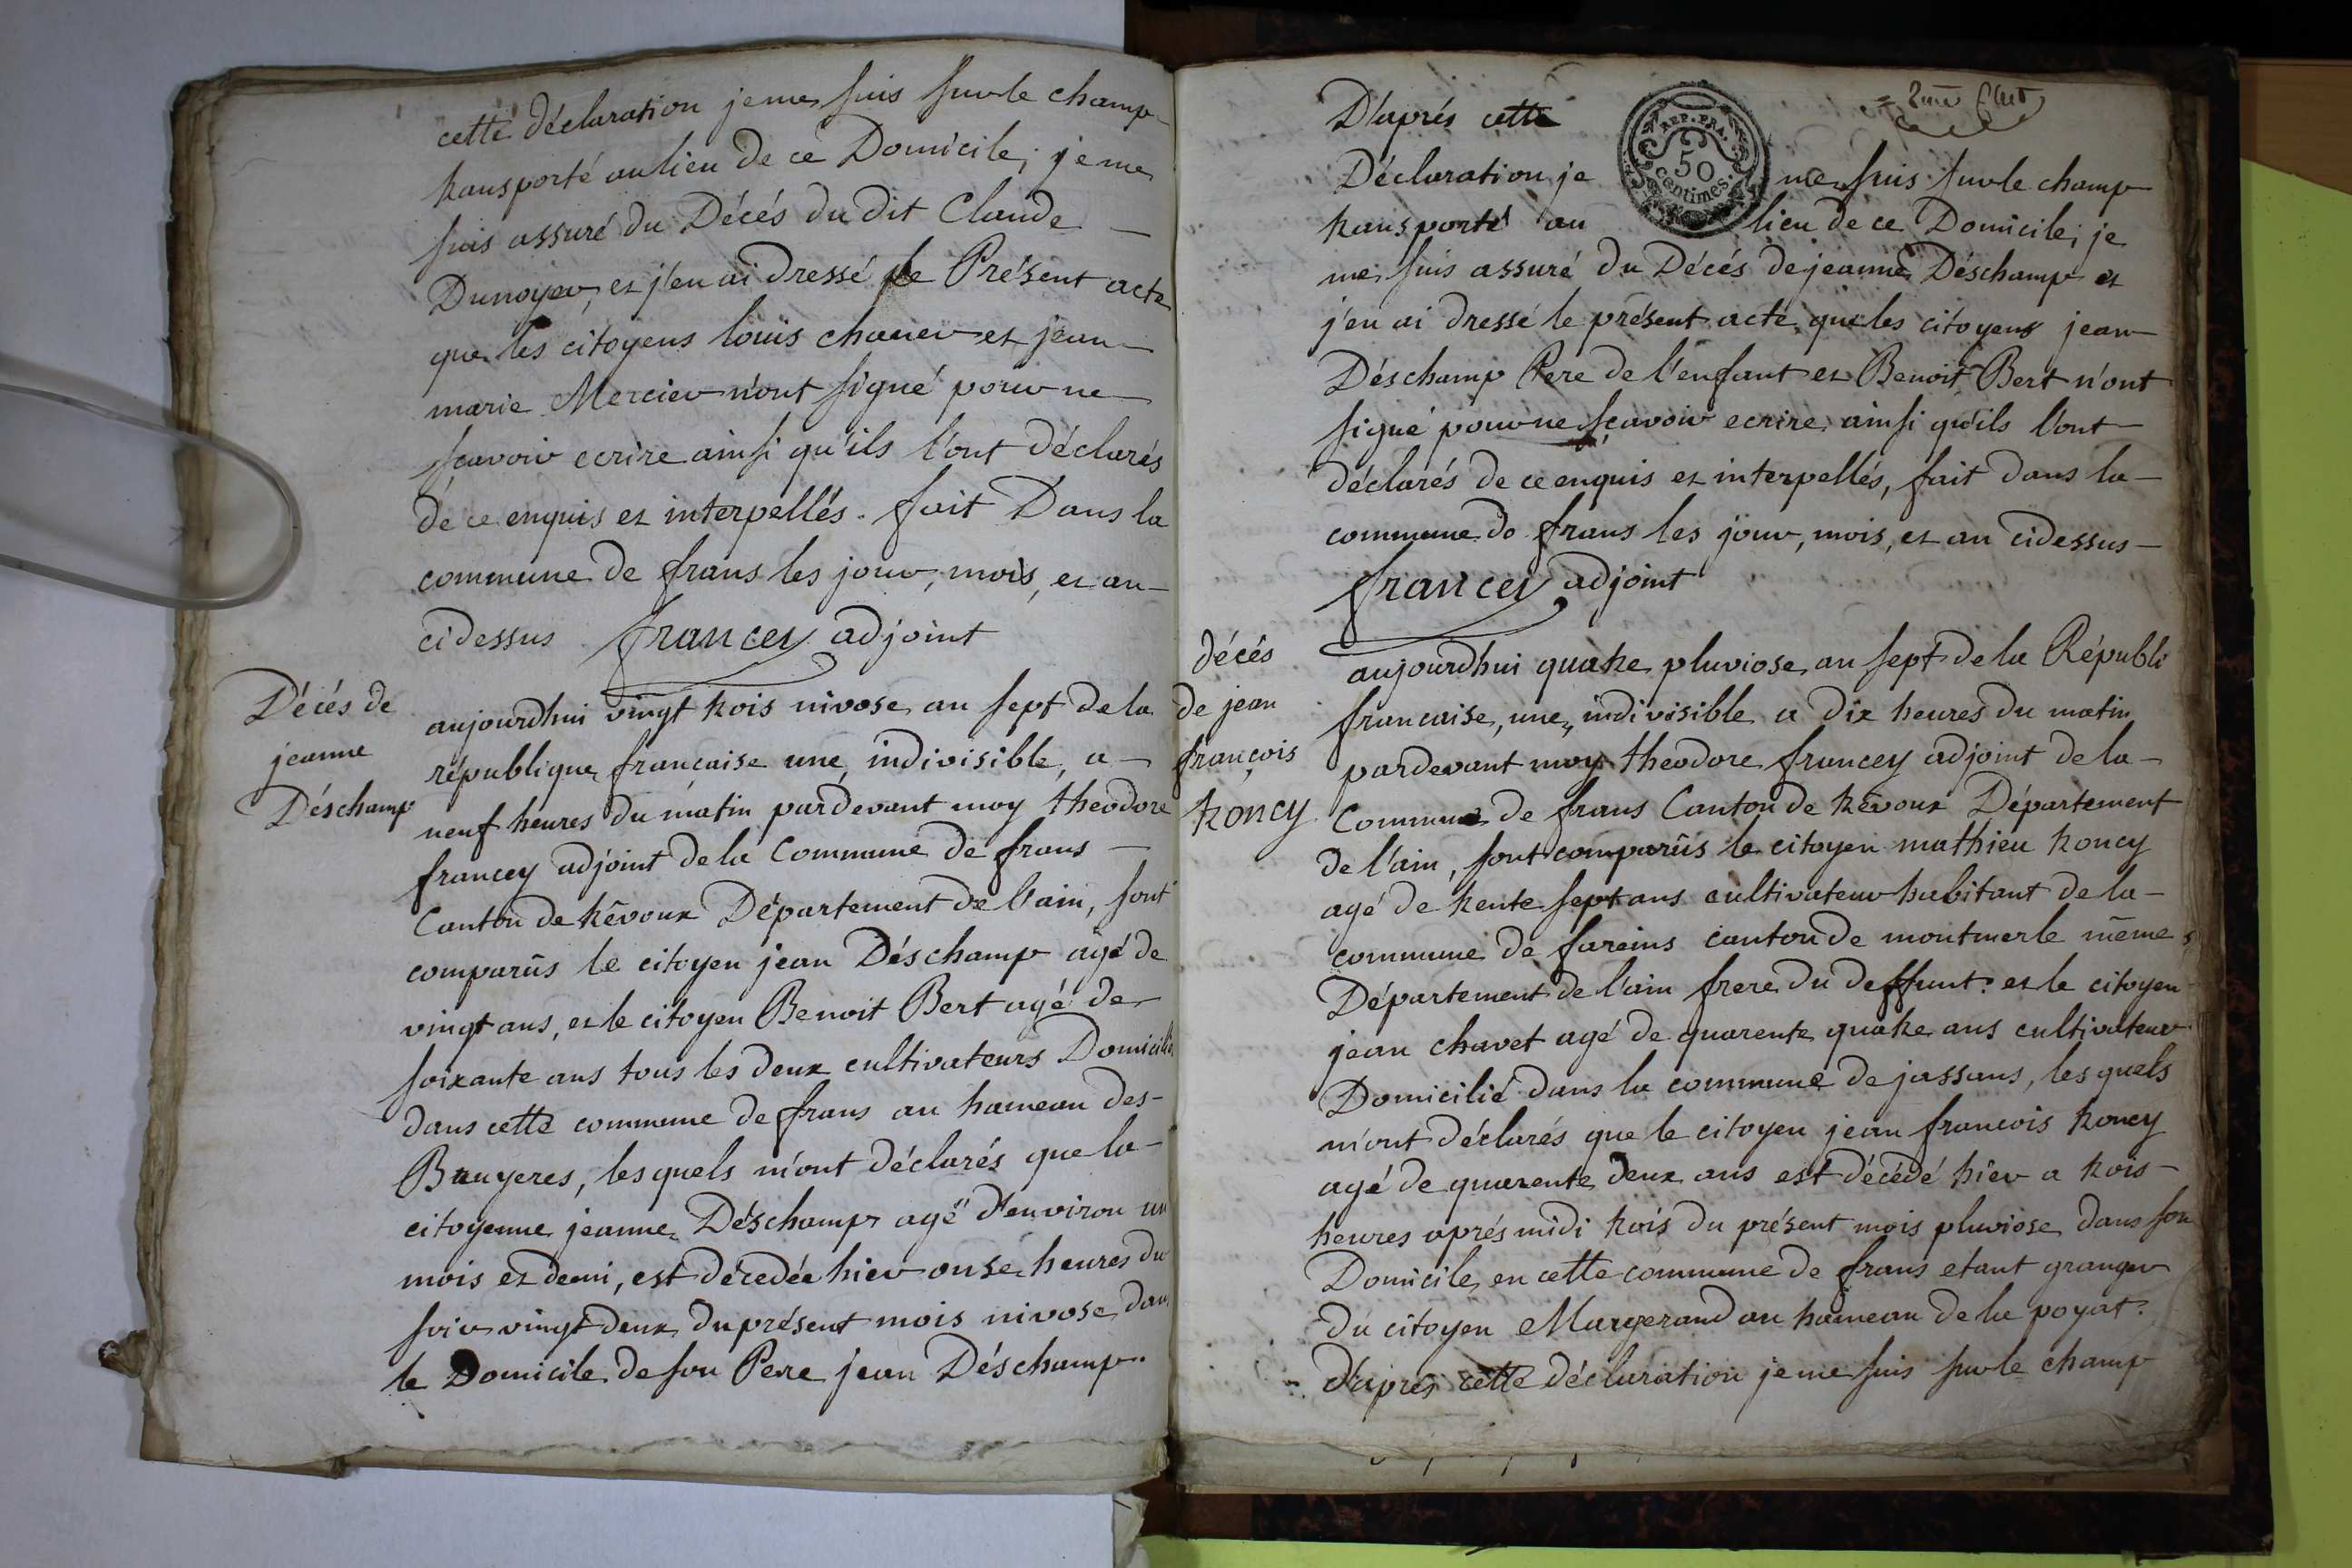 cette déclaration je me suis sur le champ
transporté au lieu de ce Domicile; je me
suis assuré du Décés du dit Claude
Dunoyer, et j'en ai Dressé le Présent acte
que les citoyens loüis chaner et jean
marie Mercier n'ont signé pour ne
sçavoir ecrire ainsi qu'ils l'ont déclarés
de ce enquis et interpellés. fait Dans la
commune de frans les jour, mois, et an
cidessus francey adjoint
Décés de
jeanne
Déschamp
aujourdhui vingt trois nivose an sept de la
république francaise une, indivisible, a
neuf heures du matin pardevant moy theodore
francey adjoint de la Commune de frans
Canton de trévoux Département de l'ain, sont
comparûs le citoyen jean Déschamp agé de
vingt ans, et le citoyen Benoit Bert agé de
soixante ans tous les deux cultivateurs Domiciliés
dans cette commune de frans au hameau des
Bruyeres, les quels m'ont déclarés que la
citoyenne jeanne Déschamp agé d'environ un
mois et demi, est décedée hier onse heures du
soir vingt deux du présent mois nivose dans
le Domicile de son Pere jean Déschamp.
2me f.let
REP. FRA.
50
centimes.
D'aprés cette
Déclaration je me suis sur le champ
transporté au lieu de ce Domicile; je
me suis assuré du Décés de jeanne Déschamp et
j'en ai dressé le présent acte que les citoyens jean
Déschamp Pere de l'enfant et Benoit Bert n'ont
signé pour ne sçavoir ecrire ainsi qu'ils l'ont
déclarés de ce enquis et interpellés, fait dans la
commune de frans les jour, mois, et an cidessus
francey adjoint
décés
de jean
françois
troncy
aujourdhui quatre pluviose an sept de la Républi
francaise, une, indivisible a dix heures du matin
pardevant moy theodore francey adjoint de la
Commune de frans Canton de trévoux Département
de l'ain, sont comparûs le citoyen mathieu troncy
agé de trente sept ans cultivateur habitant de la
commune de fareins canton de montmerle même
Département de l'ain frere du deffunt. et le citoyen
jean chavet agé de quarente quatre ans cultivateur
Domicilié dans la commune de jassans, les quels
m'ont déclarés que le citoyen jean francois troncy
agé de quarente deux ans est décédé hier a trois
heures aprés midi trois du présent mois pluviose dans son
Domicile en cette commune de frans etant granger
du citoyen Margerand au hameau de la poyat.
d'aprés cette déclaration je me suis sur le champ